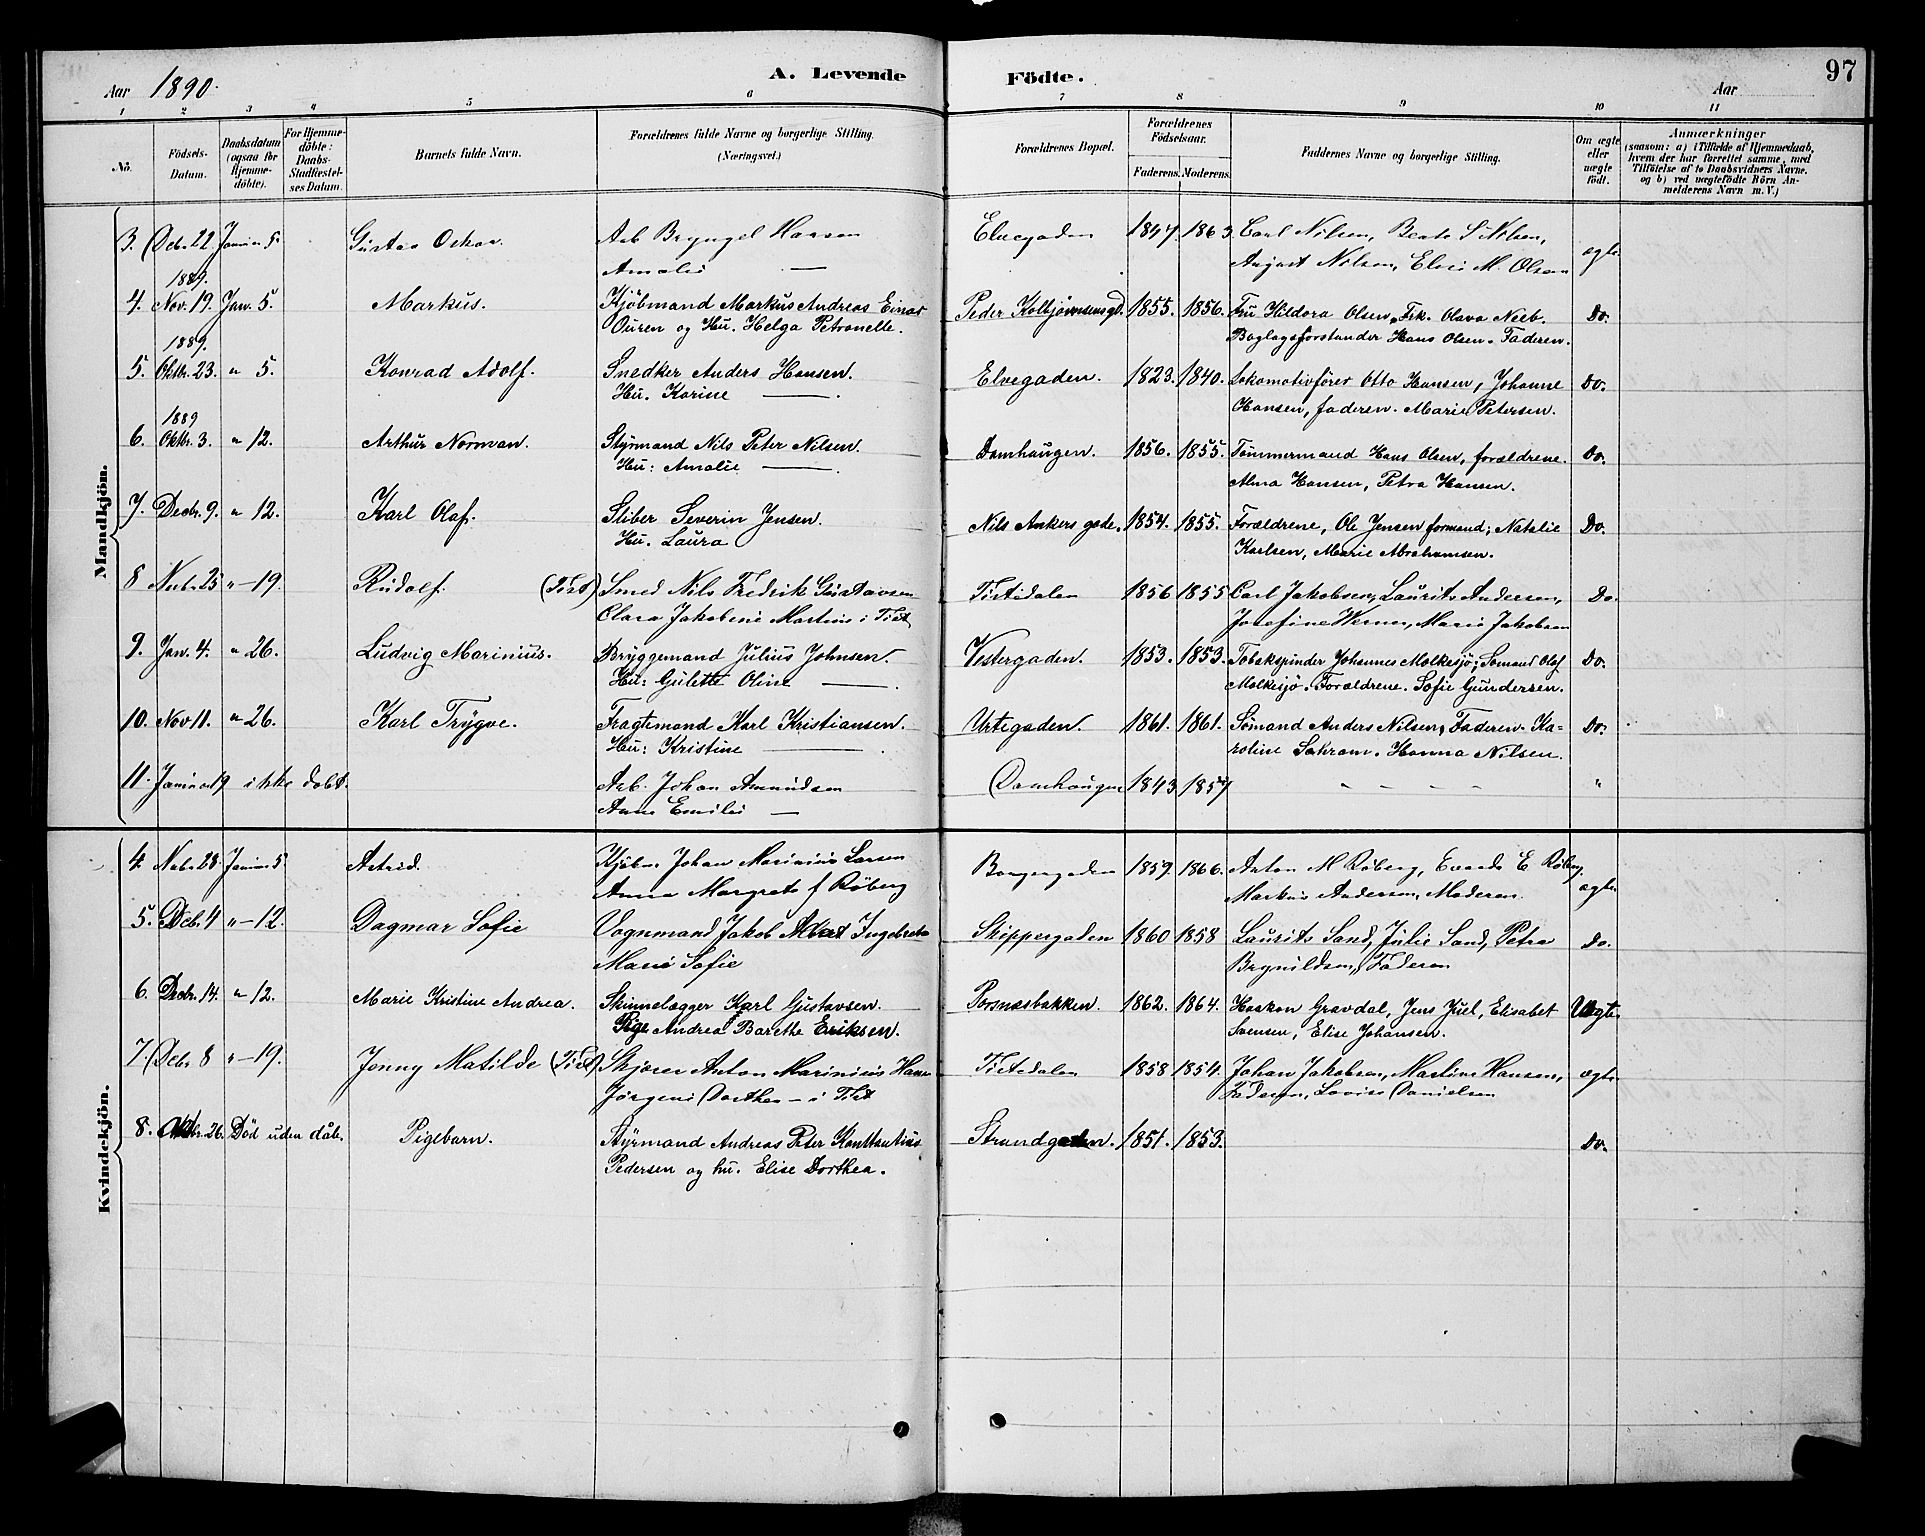 Aar 1890. A. Levende Födte. Aar 97
1 2 3 4 5 6 7 8 9 10 11
No. Födsels-Datum. Daabsdatum (ogsaa for Hjemme-döbte). For Hjemme-döbte: Daabs-Stadfæstel-ses Datum. Barnets fulde Navn. Forældrenes fulde Navne og borgerlige Stilling. (Næringsvei.) Forældrenes Bopæl. Forældrenes Födselsaar. Faderens. Moderens. Faddernes Navne og borgerlige Stilling. Om ægte eller uægte födt. Anmærkninger (saasom: a) i Tilfælde af Hjemmedaab, hvem der har forrettet samme, med Tilföielse af to Daabsvidners Navne. og b) ved uægtefödte Börn An-melderens Navn m. V.)
Mandkjön.
3. Decbr. 22. Januar 5. Gustav Oskar. Arb Bryngel Hansen Elvegaden 1847. 1863. Carl Nilsen, Beate S Nilsen, ægte
Amalie — August Nilsen, Elvis M. Olsen
1889.
4. Nov. 19. Jan. 5. Markus. Kjöbmand Markus Andreas Einar Peder Kolbjørnsensgd. 1855. 1856. Fru Hildora Olsen, Frk. Olava Neeb. Do.
Ouren og Hu. Helga Petronelle. Boglagsforstander Hans Olsen. Faderen.
1889.
5. Oktbr. 23. " 5. Konrad Adolf. Snedker Anders Hansen. Elvegaden. 1823. 1840. Lokomotivfører Otto Hansen, Johanne Do.
Hu. Karine —. Hansen, faderen. Marie Petersen.
1889
6. Oktbr. 3. " 12. Arthur Norman. Styrmand Nils Peter Nilsen. Damhaugen. 1856. 1855. Tømmermand Hans Olsen, forældrene. Do.
Hu: Amalie — Alma Hansen, Petra Hansen.
7. Decbr. 9. " 12. Karl Olaf. Sliber Severin Jensen. Nils Ankers gade, 1854. 1855. Forældrene, Ole Jensen formand; Natalie Do.
Hu. Laura Karlsen, Marie Abrahamsen.
8 Novbr. 25 " — 19. Rudolf. (Tist) Smed Nils Fredrik Gustavsen Tistedalen 1856 1855 Carl Jakobsen, Laurits Andersen, Do.
Clara Jakobine Martins i Tist Josefine Werner, Marie Jakobsen
9. Jan. 4. " 26. Ludvig Marinius. Bryggemand Julius Johnsen. Vestergaden. 1853. 1853. Tobakspinder Johannes Molkesjø; Sømand Olaf Do.
Hu: Gulette Oline —. Molkesjø. Forældrene. Sofie Gundersen.
10. Nov 11. " 26. Karl Trygve. Fragtemand Karl Kristiansen. Urtegaden. 1861. 1861. Sømand Anders Nilsen, Faderen. Ka- Do.
Hu: Kristine —. roline Sakram. Hanna Nilsen.
11. Januar 19 ikke døbt. Arb. Johan Amundsen Damhaugen 1843 1857 - - - - - "
Anne Emilie —
Kvindekjön.
4. Novbr. 28. Januar 5 Astrid. Kjøbm Johan Marinius Larsen Borgergaden 1859. 1866. Anton M Røberg, Evarda E Røberg, ægte
Anna Margrete f Røberg Markus Andersen, Moderen
5. Decbr. 4 " — 12. Dagmar Sofie Vognmand Jakob Albert Ingebretsen Skippergaden 1860 1858 Laurits Sand, Julie Sand, Petra Do.
Marie Sofie Brynildsen, Faderen
6. Decbr. 14. " 12. Marie Kristine Andrea. Skinnelægger Karl Gustavsen. Porsnæsbakken. 1862. 1864. Haakon Gravdal, Jens Juel, Elisabet Uægte
Pige Andrea Barethe Eriksen. Svensen, Elise Johansen.
7. Decbr 8 " — 19. Jenny Matilde (Tist) Skjører Anton Marinius Hansen Tistedalen 1858 1854. Johan Jakobsen, Martine Hansen, ægte
Jørgeni Dorthea — i Tist Faderen, Lovise Danielsen
8. Oktbr. 26. Død uden dåb. Pigebarn. Styrmand Andreas Peter Konstantius Strandgaden. 1851. 1853. Do.
Pedersen og hu. Elise Dorthea.